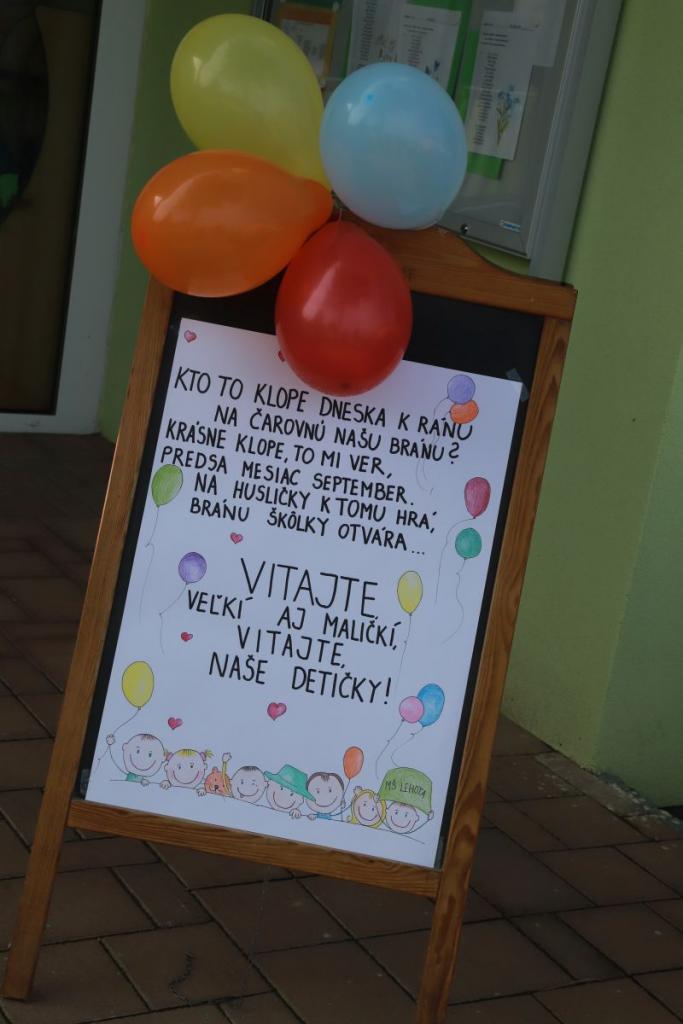 KTO TO KLOPE DNESKA K RÁNU
NA ČAROVNÚ NAŠU BRÁNU?
KRÁSNE KLOPE, TO MI VER,
PREDSA MESIAC SEPTEMBER.
NA HUSLIČKY K TOMU HRÁ,
BRÁNU ŠKÔLKY OTVÁRA...
VITAJTE
VEĽKÍ AJ MALIČKÍ,
VITAJTE,
NAŠE DETIČKY!
MŠ LEHOTA